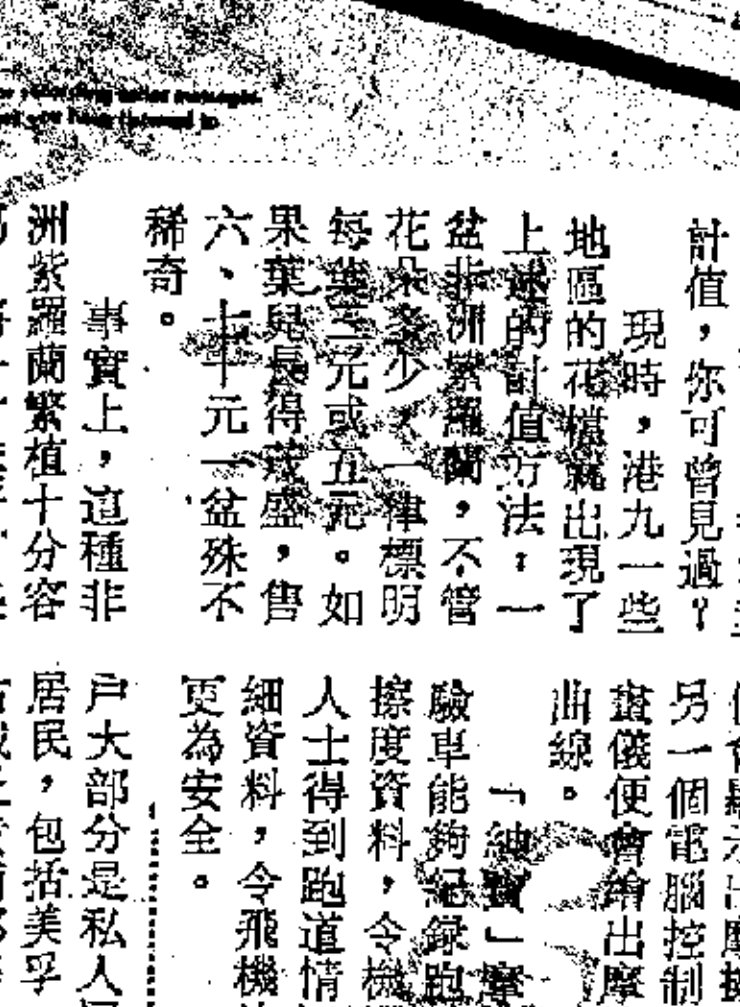 計值，你可曾見過？
現時，港九一些
地區的花檔就出現了
上述的計值方法：一
盆非洲紫羅蘭，不管
花朵多少，一律標明
每葉三元或五元。如
果葉兒長得茂盛，售
六、七十元一盆殊不
稀奇。
事實上，這種非
洲紫羅蘭繁植十分容
另一個電腦控制
儀便會繪出摩
曲線。
「紳寶」摩
驗車能夠紀錄跑
擦度資料，令機
人士得到跑道情
細資料，令飛機
更為安全。
戶大部分是私人
居民，包括美孚